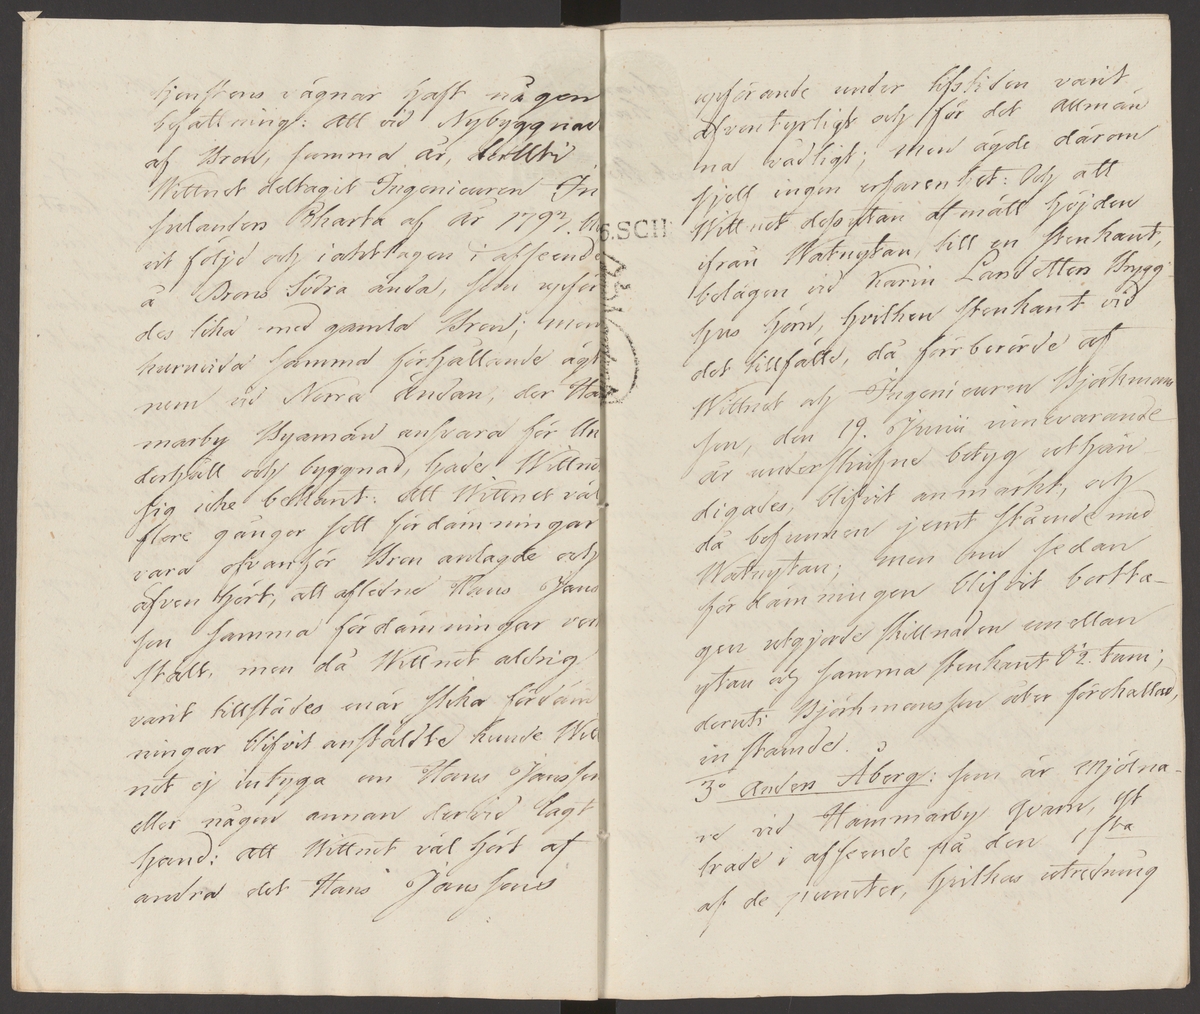 tjenstens vägnar haft någon
befattning: att vid Nybyggnad
af Bron, samma år, hvilken
Wittnet deltagit Ingenieuren
Charta af år 1797,
vit följd och i akttagen i afseende
å Brons Södra ända, som upför
des lika med gamla Bron; men
huruvida samma förhållande ägt
rum vid Norra Ändan, der Ha
marby Byamän ansvara för Un
derhåll och byggnad, hade Wittne
sig icke bekant: att Wittnet väl
flere gånger sett fördämningar
vara ofvanför Bron anlagde och
äfven hört, att aflidne Hans Jans
son samma fördämningar verk
stält, men då Wittnet aldrig
varit tillstädes när slika fördäm
ningar blifvit anstälde kunde Witt
net ej intyga om Hans Jansson
eller någon annan dervid lagt
hand: att Wittnet väl hört af
andra det Hans Janssons
6.SCH
upförande under lifstiden varit
äfventyrligt och för det allmän
na vådligt; men ägde därom
sjelf ingen erfarenhet: Och att
Wittnet dessutan afmätt höjden
ifrån Watnytan till en stenkant,
belägen vid Karin Larsdotters Brygg-
hus hörn, hvilken stenkant vid
det tillfälle, då förrberörde af
Wittnet och Ingenieuren Björkmans
son, den 19. Junii innevarande
år underskrifne betyg othän-
digades, blifvit anmärkt, och
då befunnen jemt stående med
Watnytan; men nu sedan
fördämningen blifvit bortta-
gen utgjorde skillnaden emellan
ytan och samma stenkant 6½ tum;
deruti Björkmansson åberförekallad,
instämde.
3o Anders Åberg: som är Mjölna-
re vid Hammarby Qvarn, yt
trade i afseende på den 1sta
af de puncter, hvilkas utredning